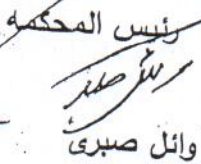 رئيس المحكمة
وائل صبرى